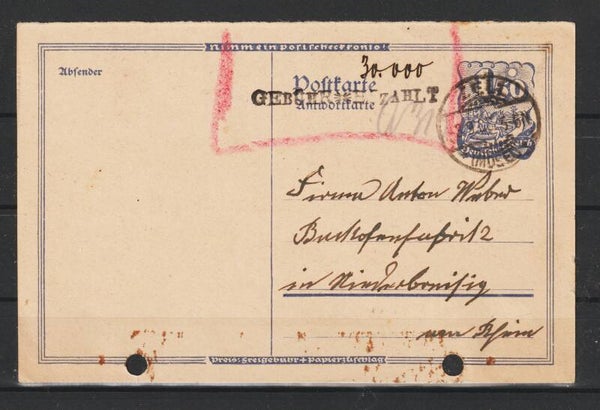 Nimm ein Postscheckkonto!
Absender
30.000
Postkarte
GEBÜHR BEZAHLT
Antwortkarte
ZELL
(MOSEL)
Firma Anton Weber
Backofenfabrik
in Niederbreisig
am Rhein
Preis: Freigebühr + Papierzuschlag